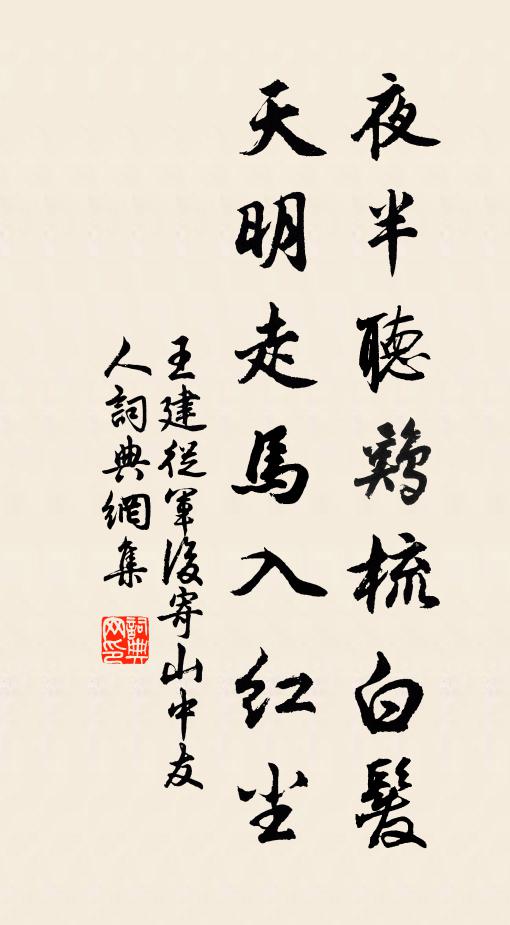 夜半聽鷄梳白髮
天明走馬入红尘
王建從軍後寄山中友
人詞典網集
詞典
网印